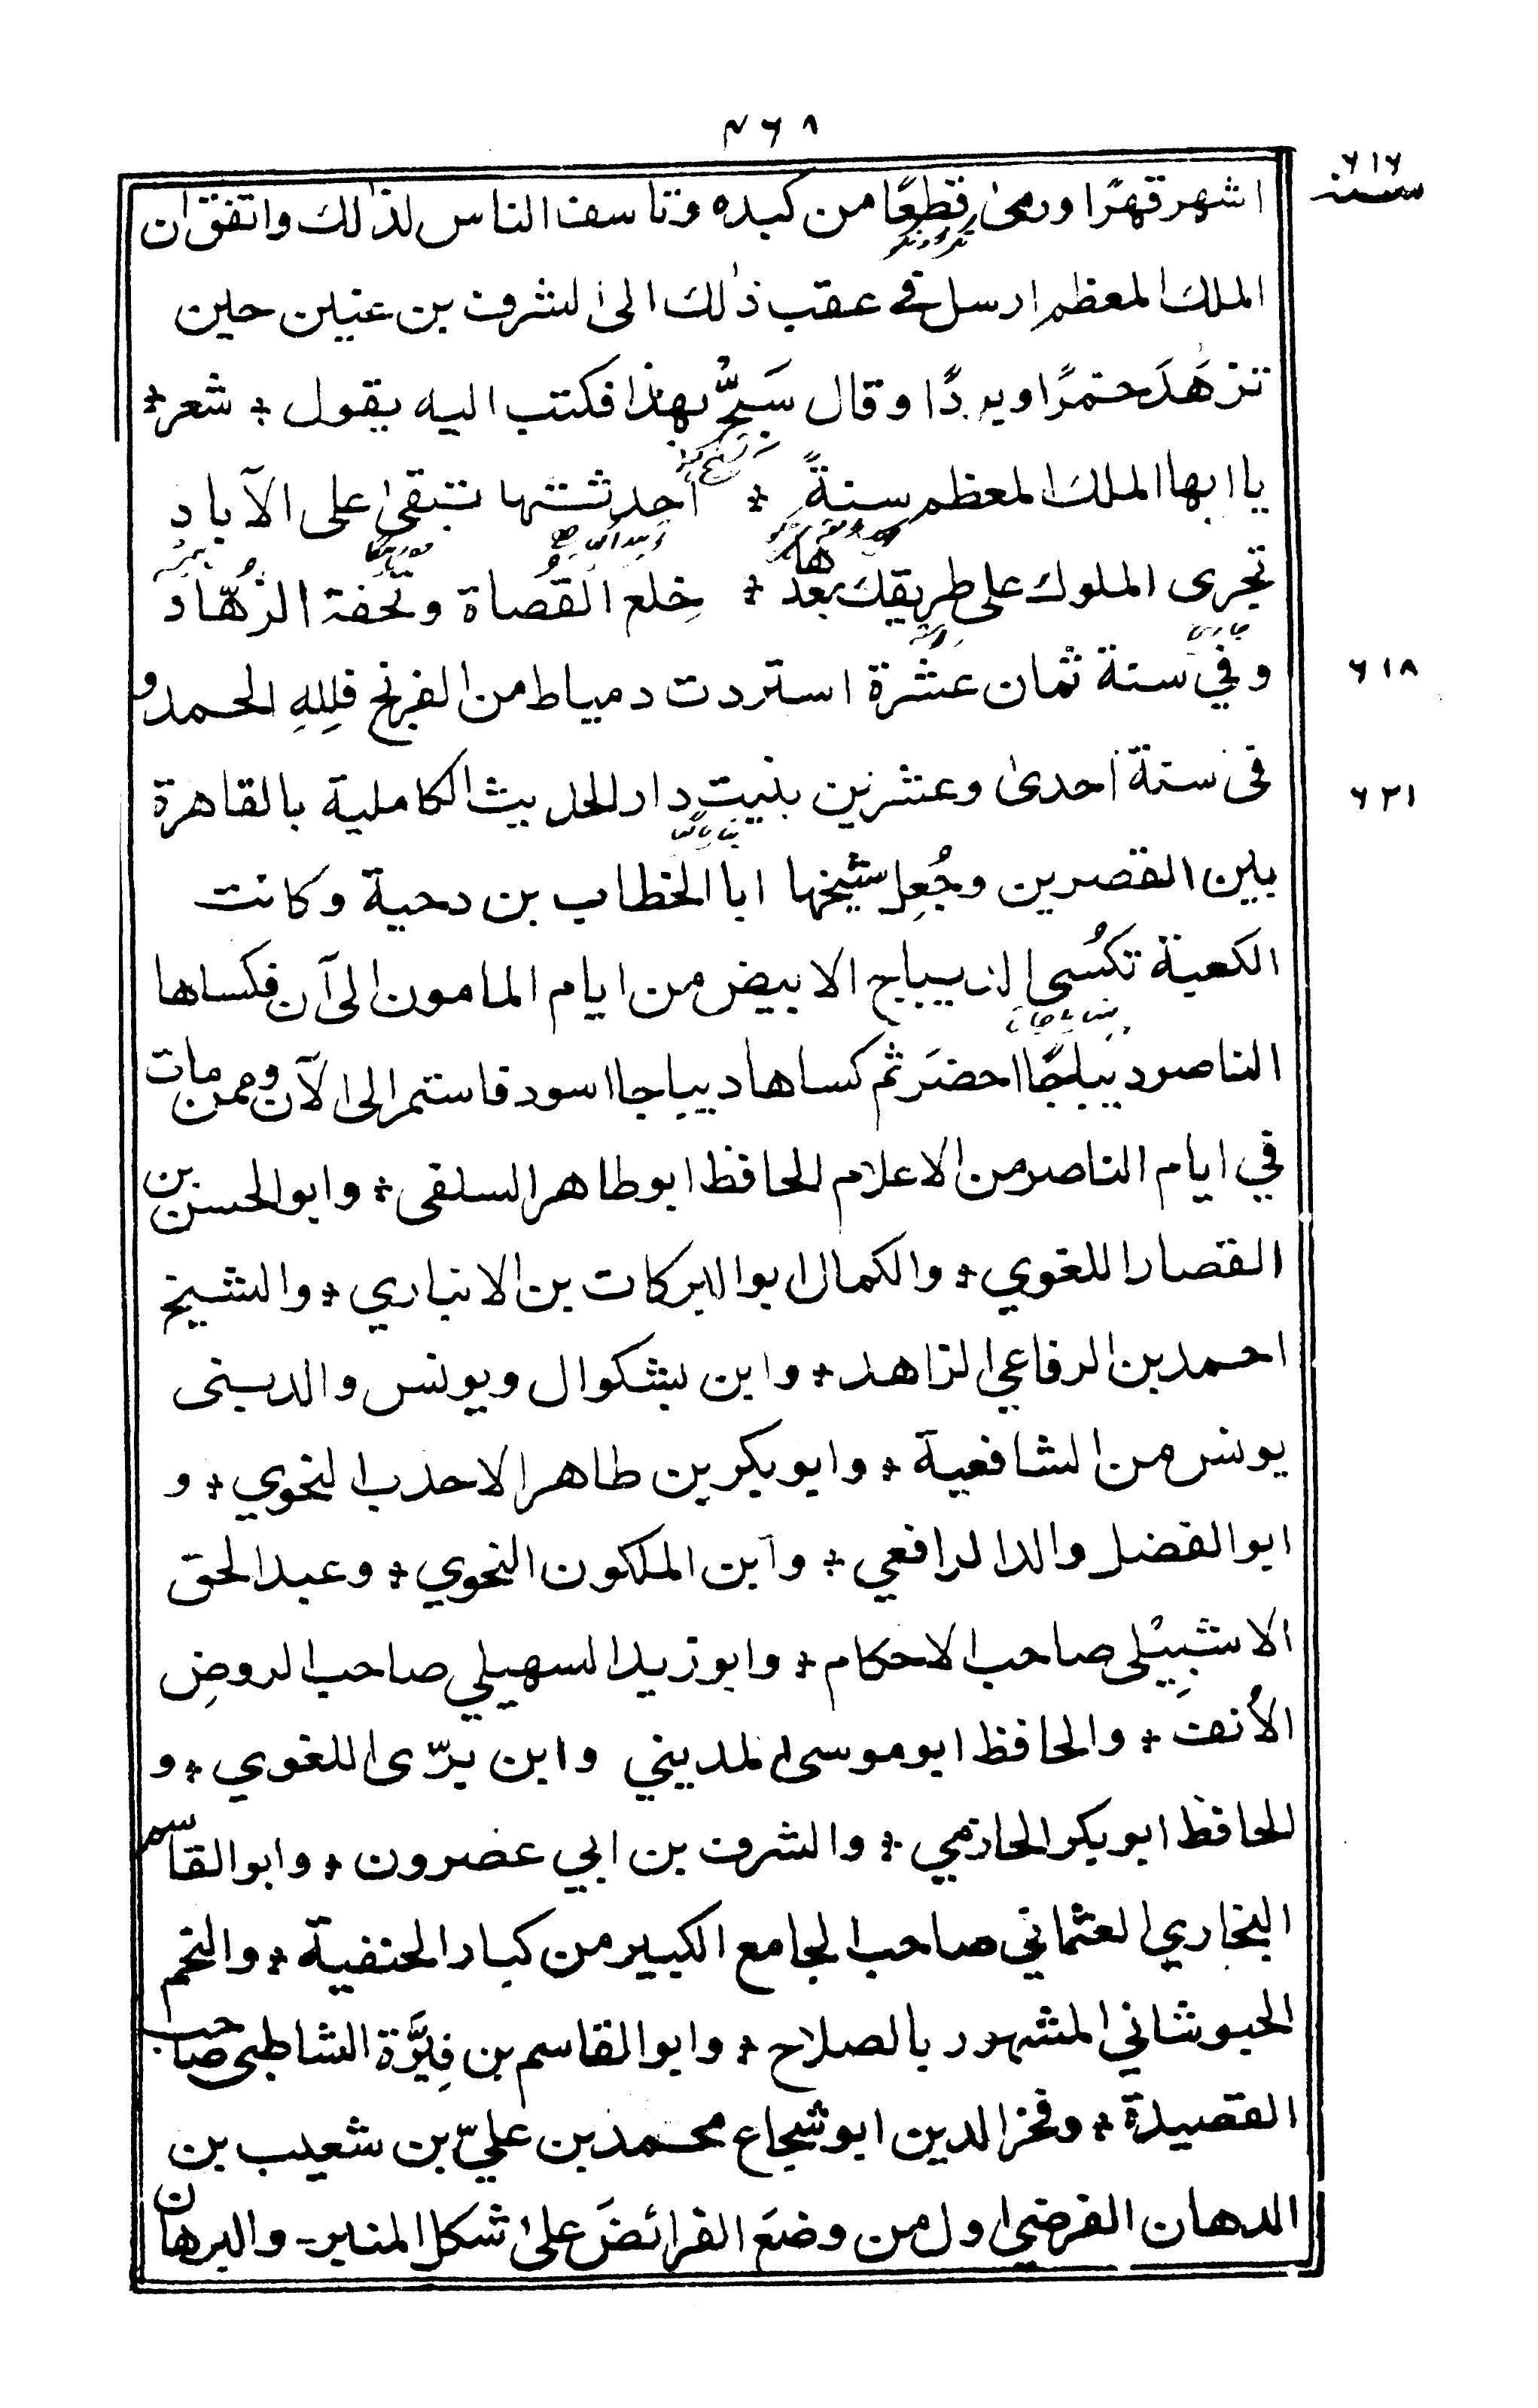 ۴۶۸
۶۱۶
سنہ
اشهر قهرًا ورمى قطعًا من كبده وتاسف الناس لذٰلك واتفق ان
الملك المعظم ارسل في عقب ذٰلك الى الشرف بن عنين حين
تزهَدَ خمرًا وبردًا وقال سَبِّحْ بهذا فكتب اليه يقول ÷ شعر ÷
يا ايها الملك المعظم سنةً ÷ احدثتها تبقى على الآبادِ
تجرى الملوك على طريقك بعدها ÷ خِلع القُضاة وتُحفة الزُهّادِ
وفي سنة ثمان عشرة استردت دمياط من الفرنج فللهِ الحمد و
۶۱۸
فى سنة احدى وعشرين بنيت دار الحديث الكاملية بالقاهرة
۶۲۱
بين القصرين وجُعِل شيخها ابا الخطاب بن دحية وكانت
الكعبة تكسُى الديباج الابيض من ايام المامون الى آن فكساها
الناصر ديباجًا اخضَر ثم كساها ديباجا اسود فاستمر الى الآن وممن مات
في ايام الناصر من الاعلام الحافظ ابو طاهر السلفى ÷ وابو الحسن بن
القصار اللغوي ÷ والكمال ابو البركات بن الانباري ÷ والشيخ
احمد بن الرفاعي الزاهد ÷ وابن بشكوال ويونس والد بنى
يونس من الشافعية ÷ وابو بكر بن طاهر الاحذب النحوي ÷ و
ابو الفضل والد الرافعي ÷ وابن الملكون النحوي ÷ وعبد الحق
الاشبِيْلى صاحب الاحكام ÷ وابو زيد السهيلي صاحب الروضِ
الأنف ÷ والحافظ ابو موسى المديني وابن برّى اللغوي ÷ و
الحافظ ابو بكر الحازمي ÷ والشرف بن ابي عصرون ÷ وابو القاسم
البخاري العثماني صاحب الجامع الكبير من كبار الحنفية ÷ والنجم
الحبوشاني المشهور بالصلاح ÷ وابو القاسم بن فِيَرَّة الشاطبى صاحب
القصيدة ÷ وفخر الدين ابو شجاع محمد بن عليّ بن شعيب بن
الدهان الفرضي اول من وضعَ الفرائضَ على شكل المنبر - والبرهان